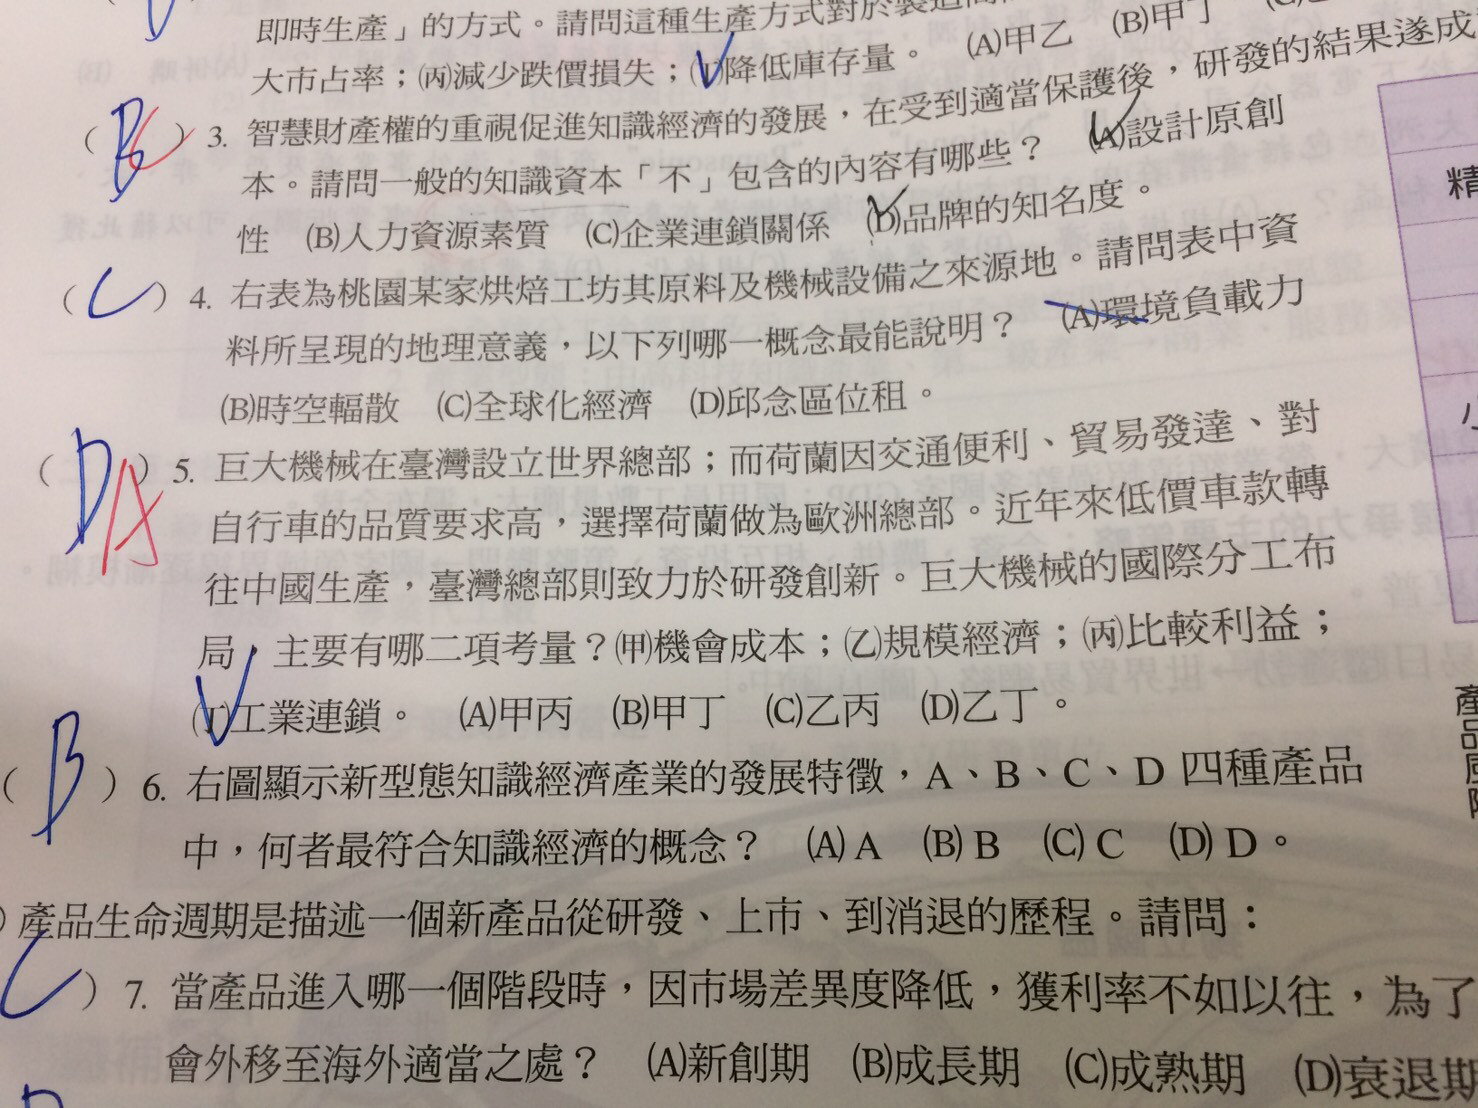 即時生產」的方式。請問這種生產方式對於製造商
大市占率；(丙)減少跌價損失；(丁)降低庫存量。 (A)甲乙 (B)甲丁
( B C ) 3. 智慧財產權的重視促進知識經濟的發展，在受到適當保護後，研發的結果遂成
本。請問一般的知識資本「不」包含的內容有哪些？ (A)設計原創
性 (B)人力資源素質 (C)企業連鎖關係 (D)品牌的知名度。
( C ) 4. 右表為桃園某家烘焙工坊其原料及機械設備之來源地。請問表中資
料所呈現的地理意義，以下列哪一概念最能說明？ (A)環境負載力
(B)時空輻散 (C)全球化經濟 (D)邱念區位租。
( D A ) 5. 巨大機械在臺灣設立世界總部；而荷蘭因交通便利、貿易發達、對
自行車的品質要求高，選擇荷蘭做為歐洲總部。近年來低價車款轉
往中國生產，臺灣總部則致力於研發創新。巨大機械的國際分工布
局，主要有哪二項考量？(甲)機會成本；(乙)規模經濟；(丙)比較利益；
(丁)工業連鎖。 (A)甲丙 (B)甲丁 (C)乙丙 (D)乙丁。
( B ) 6. 右圖顯示新型態知識經濟產業的發展特徵，A、B、C、D 四種產品
中，何者最符合知識經濟的概念？ (A) A (B) B (C) C (D) D。
) 產品生命週期是描述一個新產品從研發、上市、到消退的歷程。請問：
C ) 7. 當產品進入哪一個階段時，因市場差異度降低，獲利率不如以往，為了
會外移至海外適當之處？ (A)新創期 (B)成長期 (C)成熟期 (D)衰退期
精
產品風險